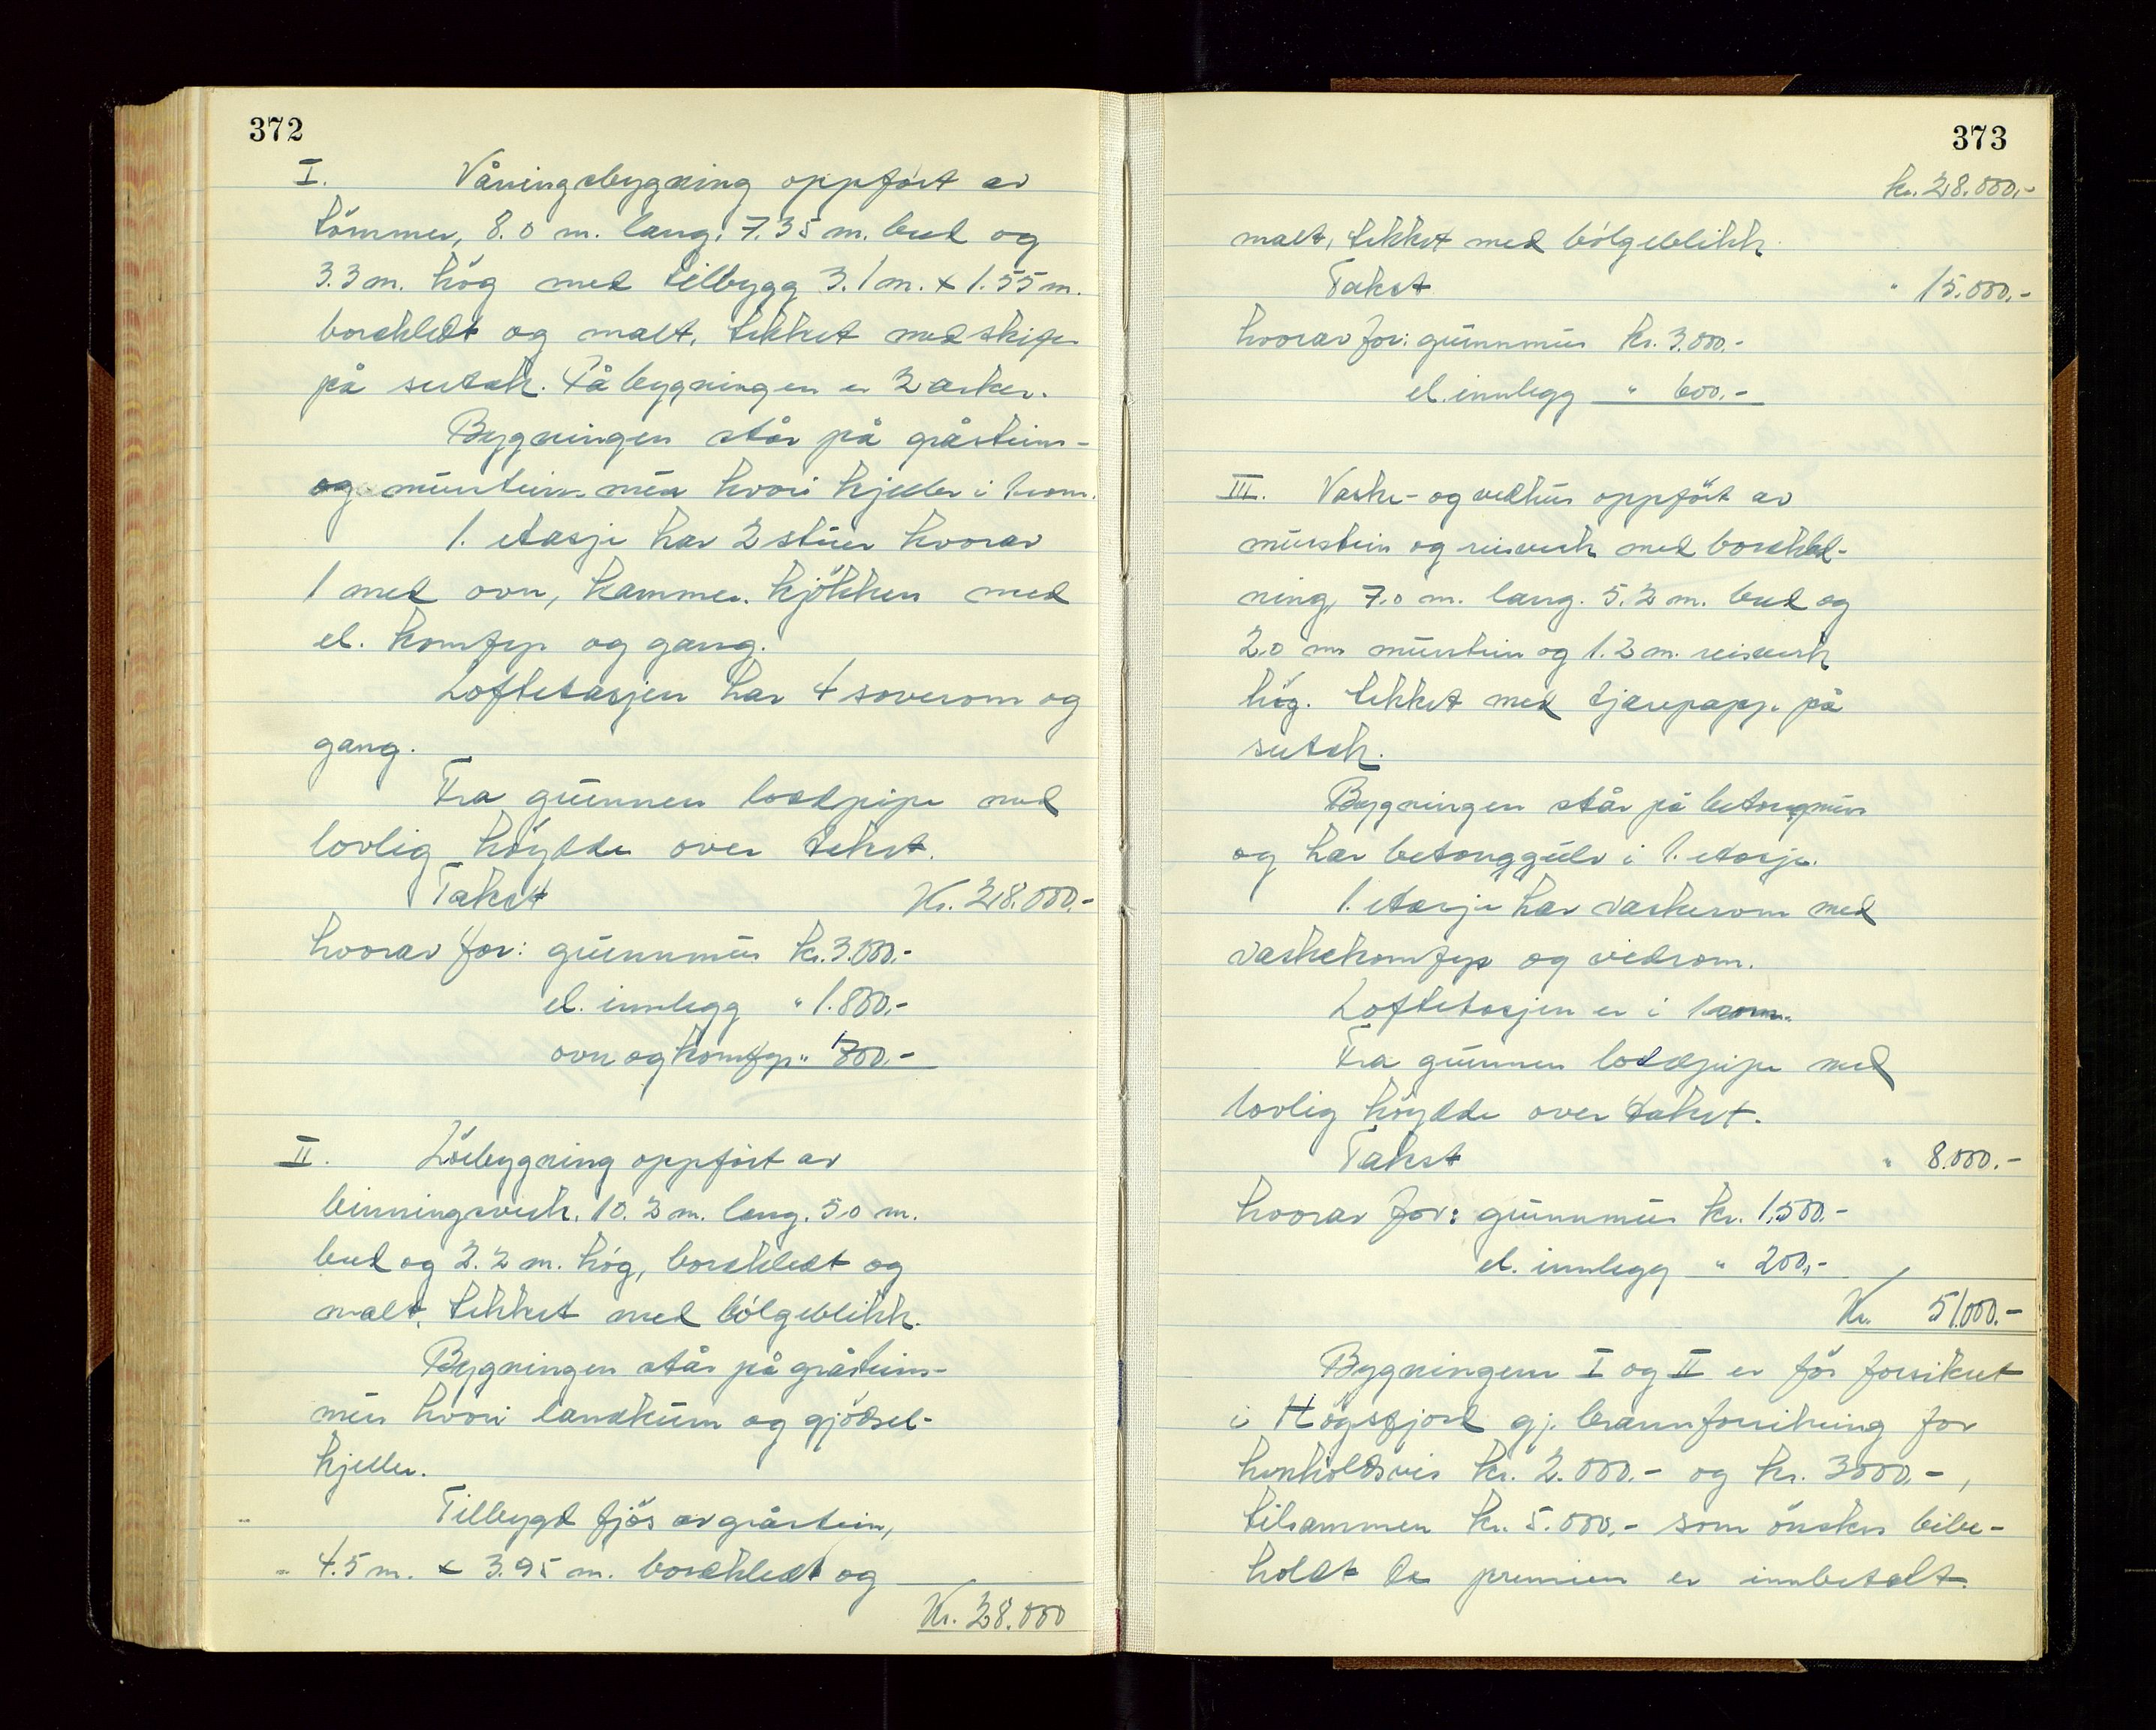 372
I. Våningsbygning oppført av
tömmer, 8.0 m. lang, 7.35 m. bred og
3.3 m. hög med tilbygg 3.1 m. x 1.55 m.
bordkledt og malt, tekket med skifer
på sutak. På bygningen er 2 arker.
Bygningen står på gråsteins-
og murstein mur hvori kjeller i 1 rom.
1. etasje har 2 stuer hvorav
1 med ovn, kammer, kjökken med
el. komfyr og gang.
Loftetasjen har 4 soverom og
gang.
Fra grunnen loddpipe med
lovlig höyde over taket.
Takst Kr. 28.000,-
hvorav for: grunnmur kr. 3.000,-
el. innlegg " 1.800,-
ovn og komfyr " 800,-
II. Löebygning oppfört av
binningsverk, 10.2 m. lang, 5.0 m.
bred og 2.2 m. hög, bordkledt og
malt, tekket med bölgeblikk.
Bygningen står på gråsteins-
mur hvori landkum og gjödsel-
kjeller.
Tilbygd fjös av gråstein,
4.5 m. x 3.95 m. bordkledt og
Kr. 28.000
373
kr. 28.000,-
malt, tekket med bölgeblikk.
Takst " 15.000,-
hvorav for: grunnmur kr. 3.000,-
el. innlegg " 600,-
III. Vaske- og vedhus oppfört av
murstein og reisverk med bordkled-
ning, 7.0 m. lang, 5.2 m. bred og
2.0 m murstein og 1.2 m. reisverk
hög. tekket med tjærepapp på
sutak.
Bygningen står på betongmur
og har betonggulv i 1. etasje.
1. etasje har vaskerom med
vaskekomfyr og vedrom.
Loftetasjen er i 1 rom.
Fra grunnen loddpipe med
lovlig höyde over taket.
Takst " 8.000.-
hvorav for: grunnmur kr. 1.500.-
el. innlegg " 200,-
Kr. 51.000.-
Bygningene I og II er för forsikret
i Högsfjord gj. brannforsikring for
henholdsvis kr. 2.000.- og kr. 3000,-,
tilsammen kr. 5.000,- som önskes bibe-
holdt da premien er innbetalt.